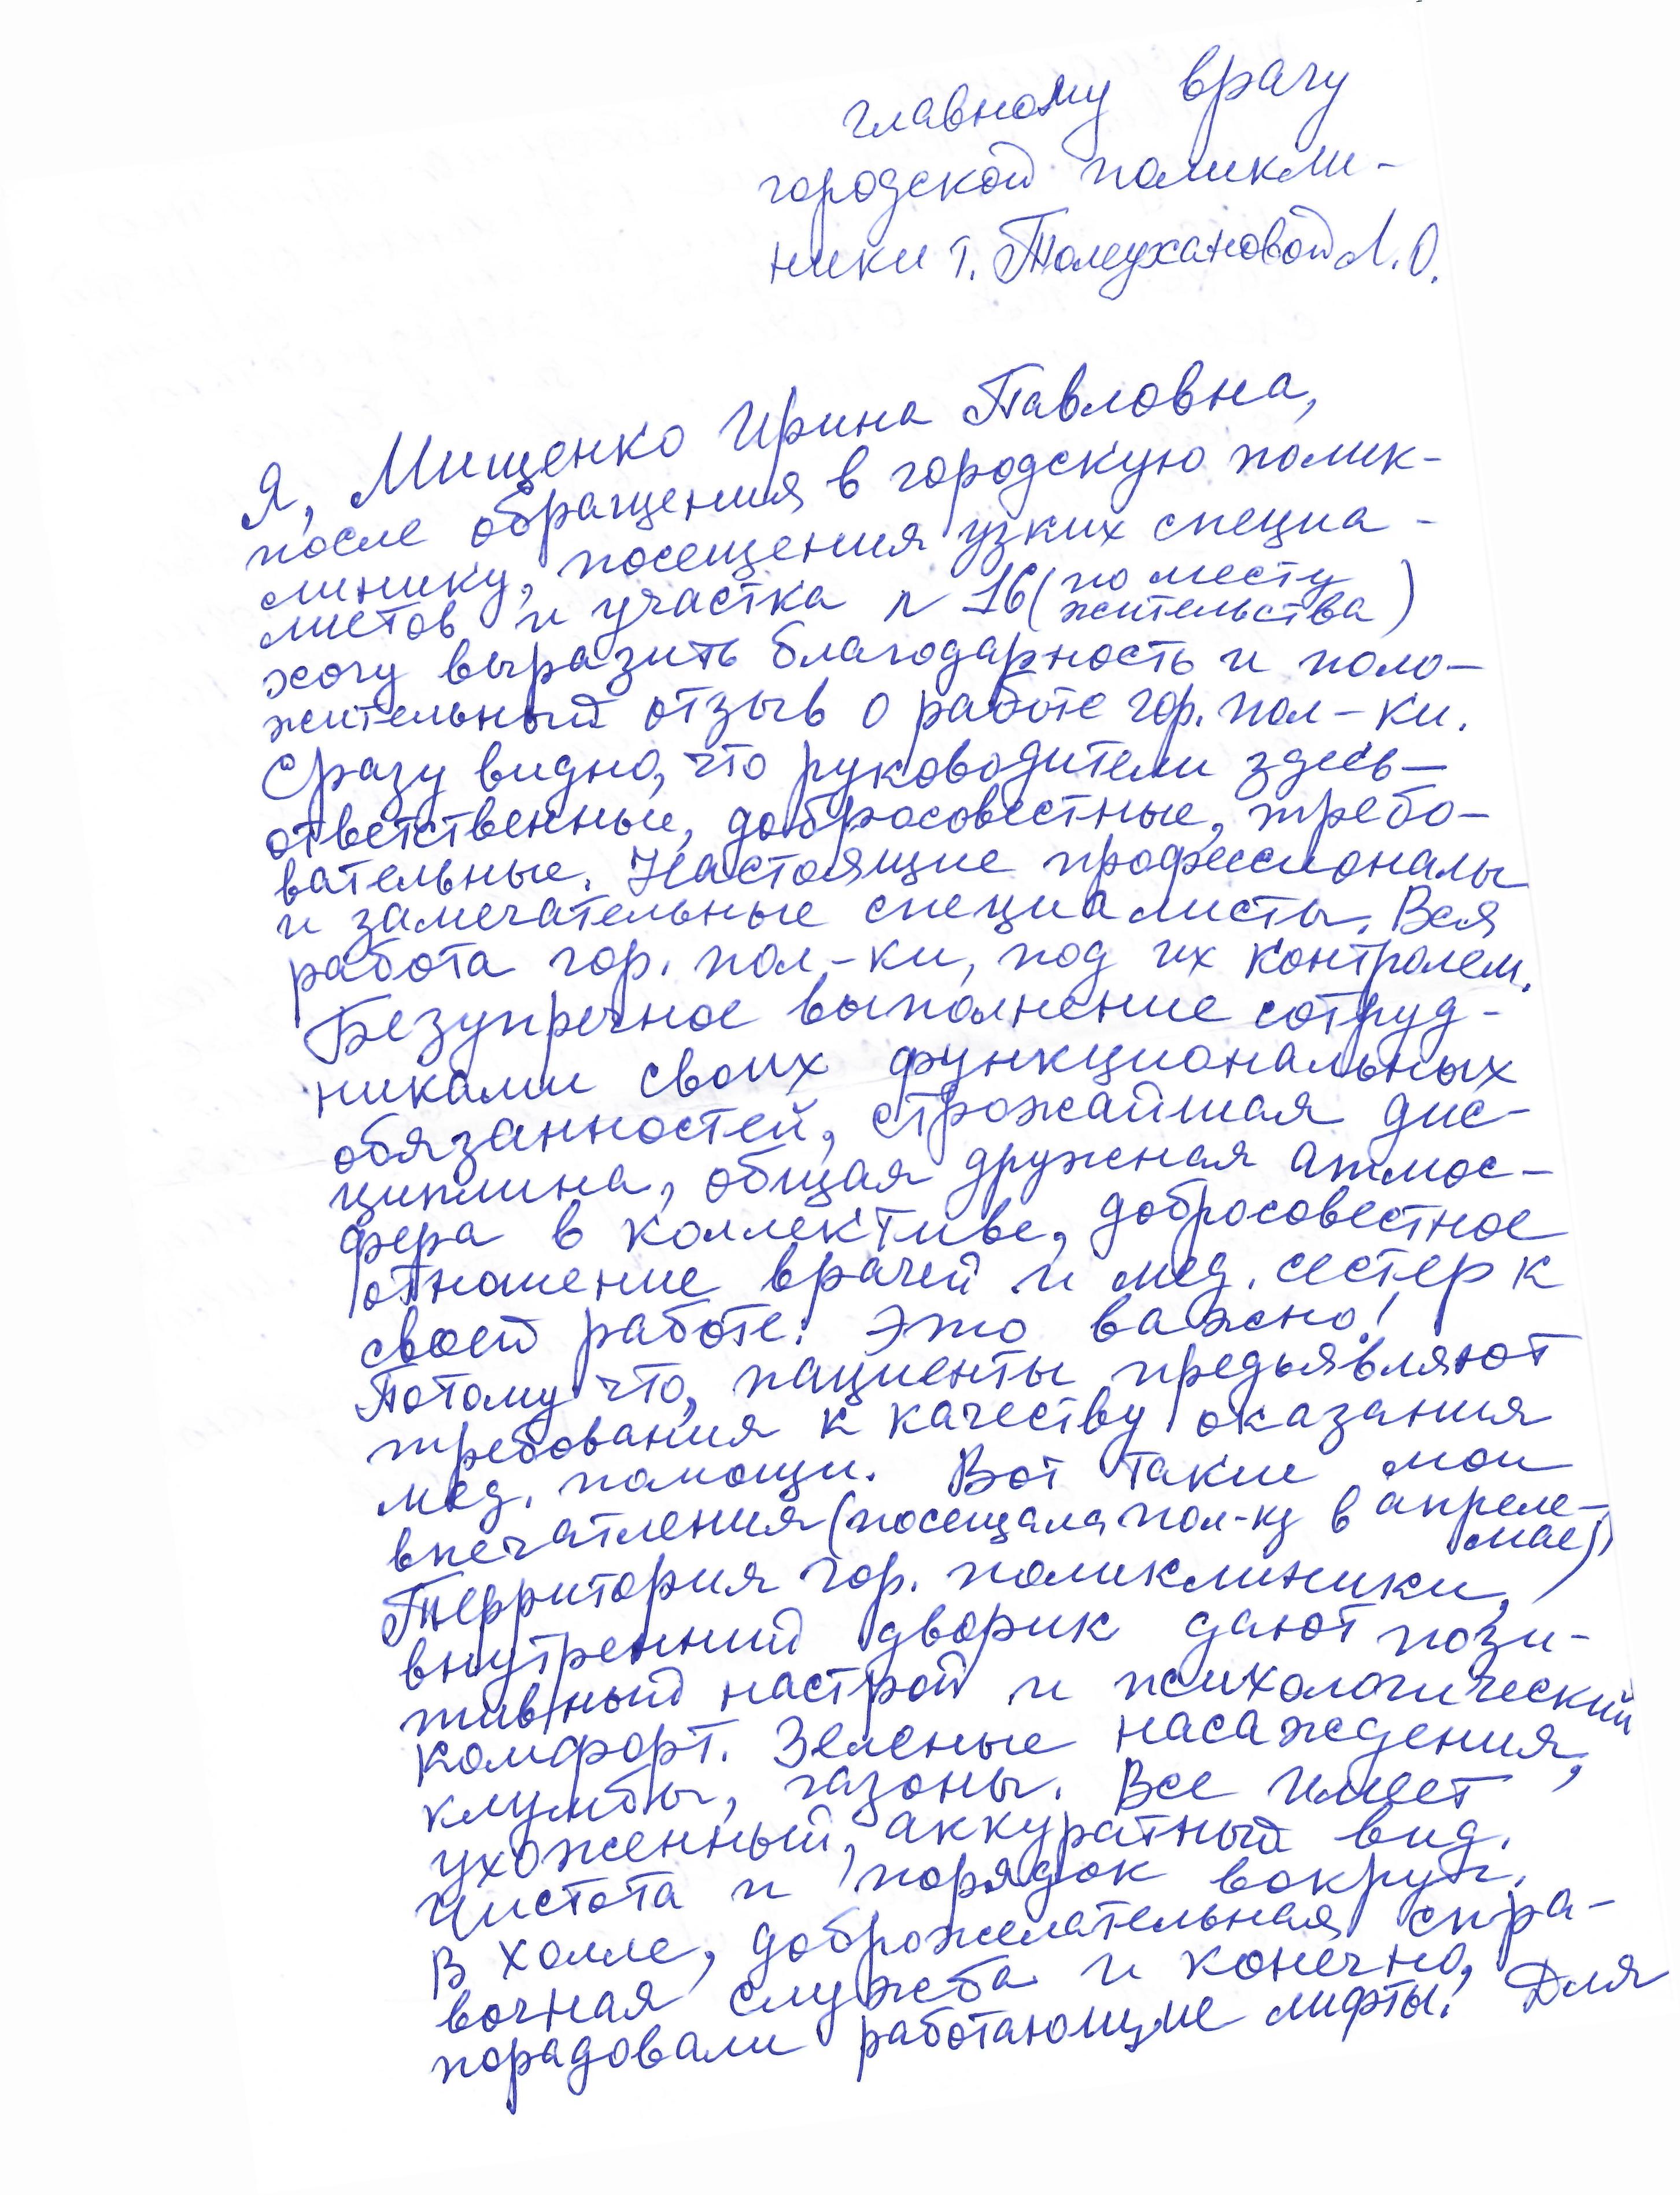 главному врачу
городской поликли-
ники г. Толеухановой Л.О.
Я, Мищенко Ирина Павловна,
после обращения в городскую полик-
линику, посещения узких специа-
листов и участка № 16 (по месту
жительства)
хочу выразить благодарность и поло-
жительный отзыв о работе гор. пол-ки.
Сразу видно, что руководители здесь-
ответственные, добросовестные, требо-
вательные. Настоящие профессионалы
и замечательные специалисты. Вся
работа гор. пол-ки, под их контролем.
Безупречное выполнение сотруд-
никами своих функциональных
обязанностей, строжайшая дис-
циплина, общая дружная атмос-
фера в коллективе, добросовестное
отношение врачей и мед. сестер к
своей работе! Это важно!
Потому что, пациенты предъявляют
требования к качеству оказания
мед. помощи. Вот такие мои
впечатления (посещала пол-ку в апреле-
мае)
Территория гор. поликлиники,
внутренний дворик дают пози-
тивный настрой и психологический
комфорт. Зеленые насаждения,
клумбы, газоны. Все имеет
ухоженный, аккуратный вид.
Чистота и порядок вокруг.
В холле, доброжелательная спра-
вочная служба и конечно,
порадовали работающие лифты! Для